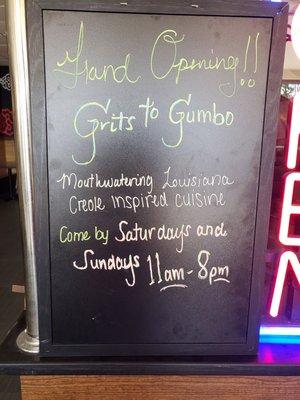 Grand Opening!!
Grits to Gumbo
Mouthwatering Louisiana
Creole inspired cuisine
Come by Saturdays and
Sundays 11am - 8pm
PEN